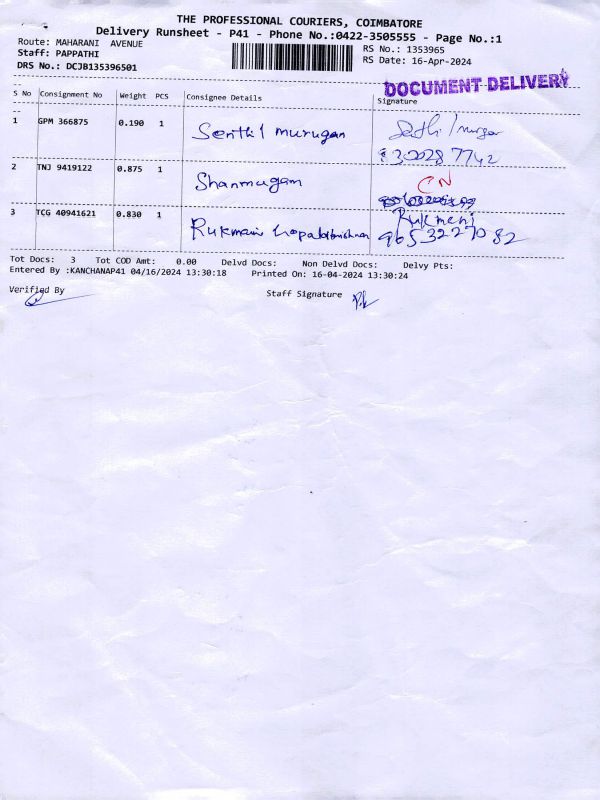 THE PROFESSIONAL COURIERS, COIMBATORE
Delivery Runsheet - P41 - Phone No.:0422-3505555 - Page No.:1
Route: MAHARANI AVENUE RS No.: 1353965
Staff: PAPPATHI RS Date: 16-Apr-2024
DRS No.: DCJB135396501
DOCUMENT DELIVERY
S No Consignment No Weight PCS Consignee Details Signature
1 GPM 366875 0.190 1 Senthil murugan
2 TNJ 9419122 0.875 1 Shanmugam CN
3 TCG 40941621 0.830 1 Rukmani Rukmani
9653227082
Tot Docs: 3 Tot COD Amt: 0.00 Delvd Docs: Non Delvd Docs: Delvy Pts:
Entered By :KANCHANAP41 04/16/2024 13:30:18 Printed On: 16-04-2024 13:30:24
Verified By Staff Signature